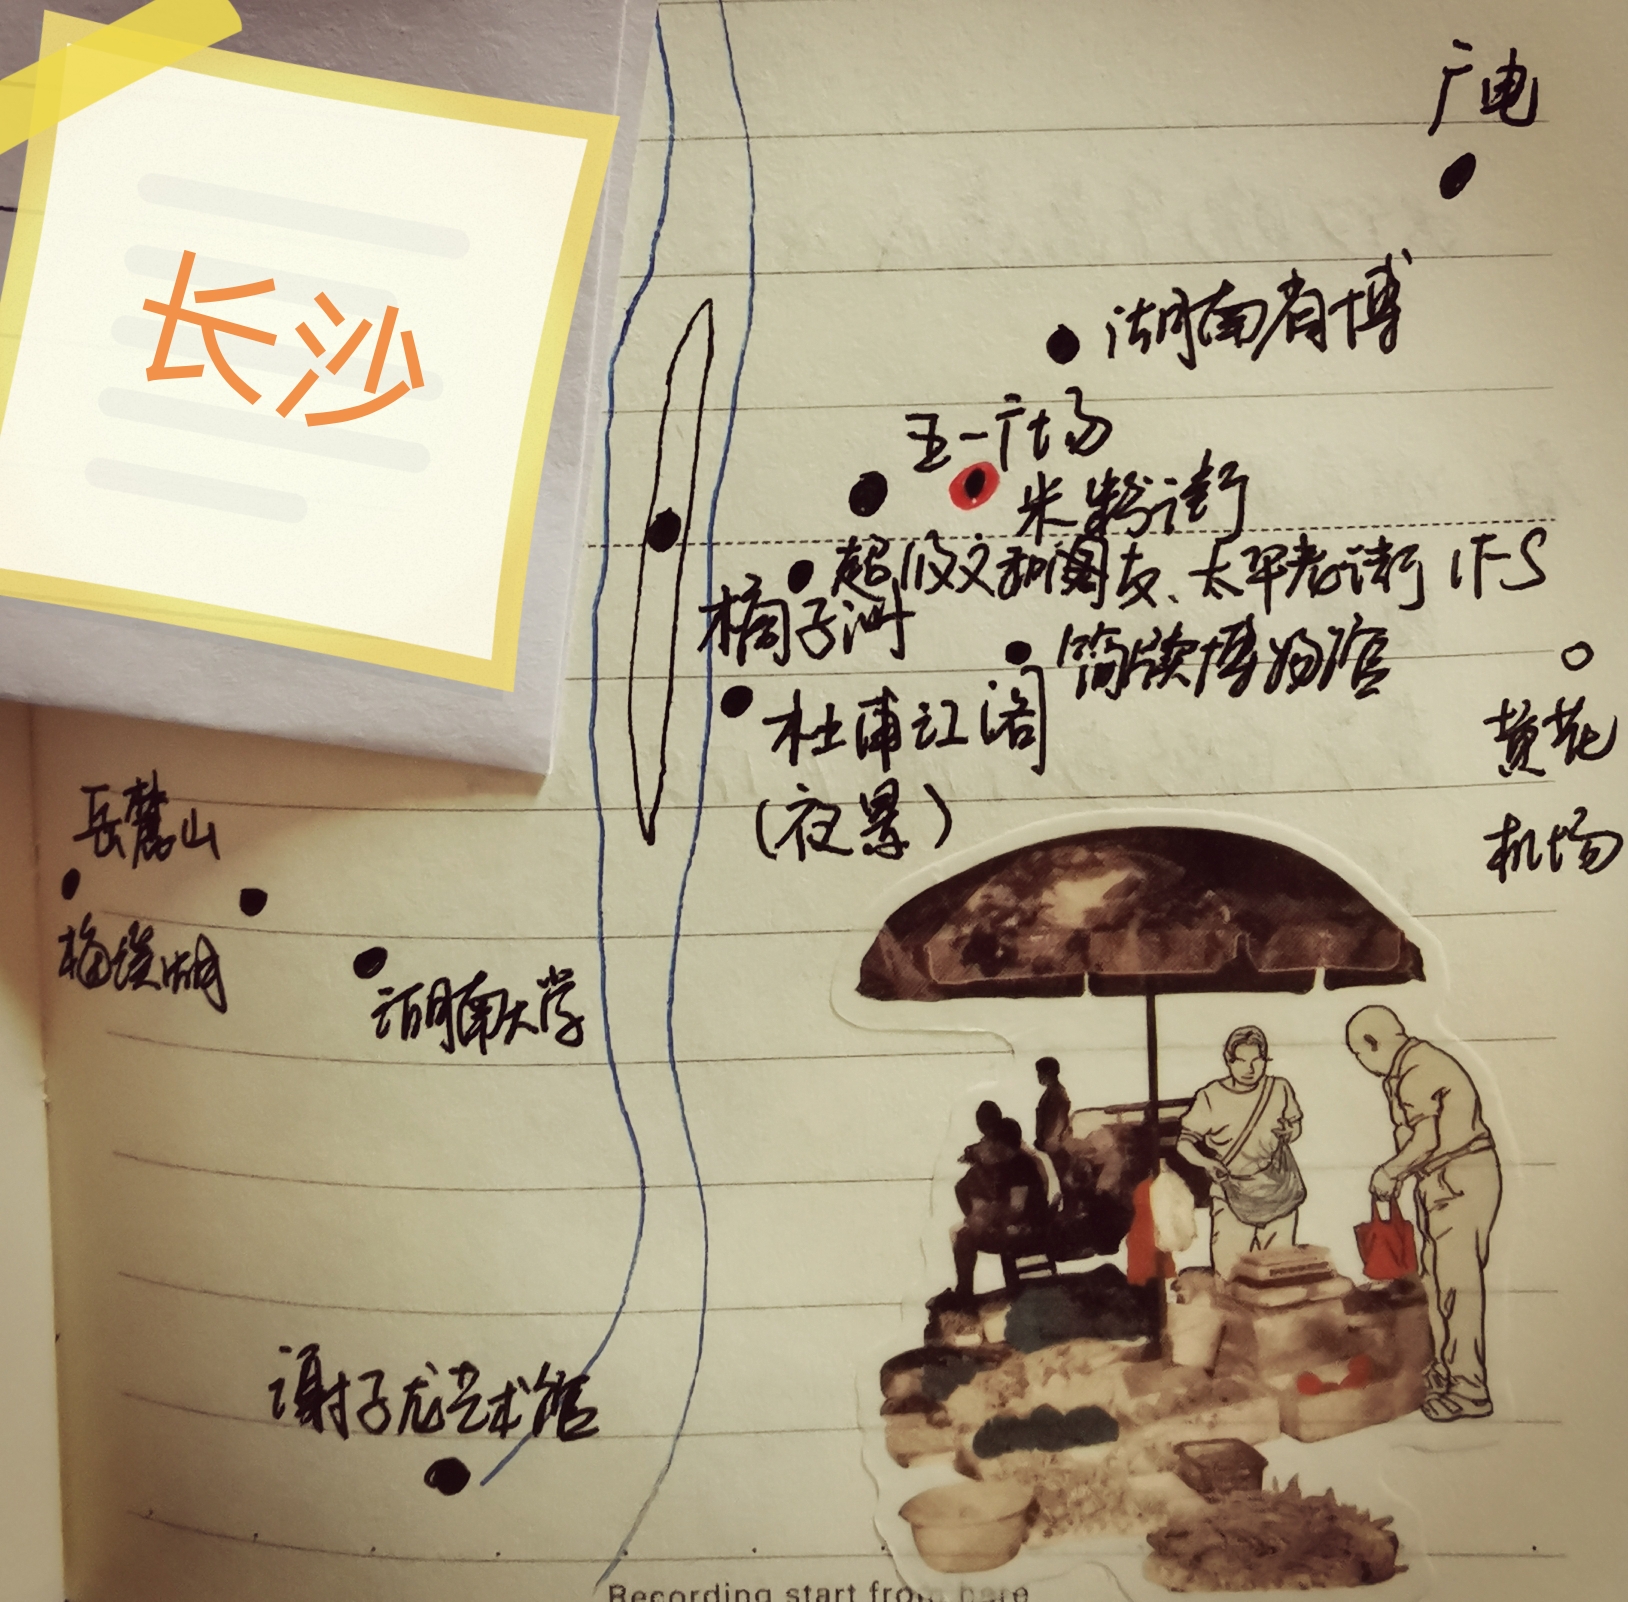 长沙
广电
湖南省博
五一广场
米粉街
超级文和友、太平老街 IFS
橘子洲
简牍博物馆
杜甫江阁
(夜景)
黄花
机场
岳麓山
梅溪湖
湖南大学
谢子龙艺术馆
Recording start from here